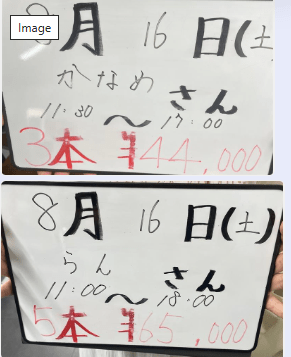 Image
8月 16 日(土
かなめ さん
11:30 〜 17:00
3本 ¥44,000
8月 16 日(土)
らん さん
11:00 〜 18:00
5本 ¥65,000